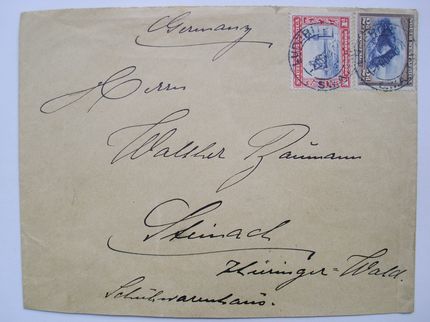 (Germany)
Herrn
Walther Baumann
Steinach
Thüringer-Wald.
Schuhwarenhaus.